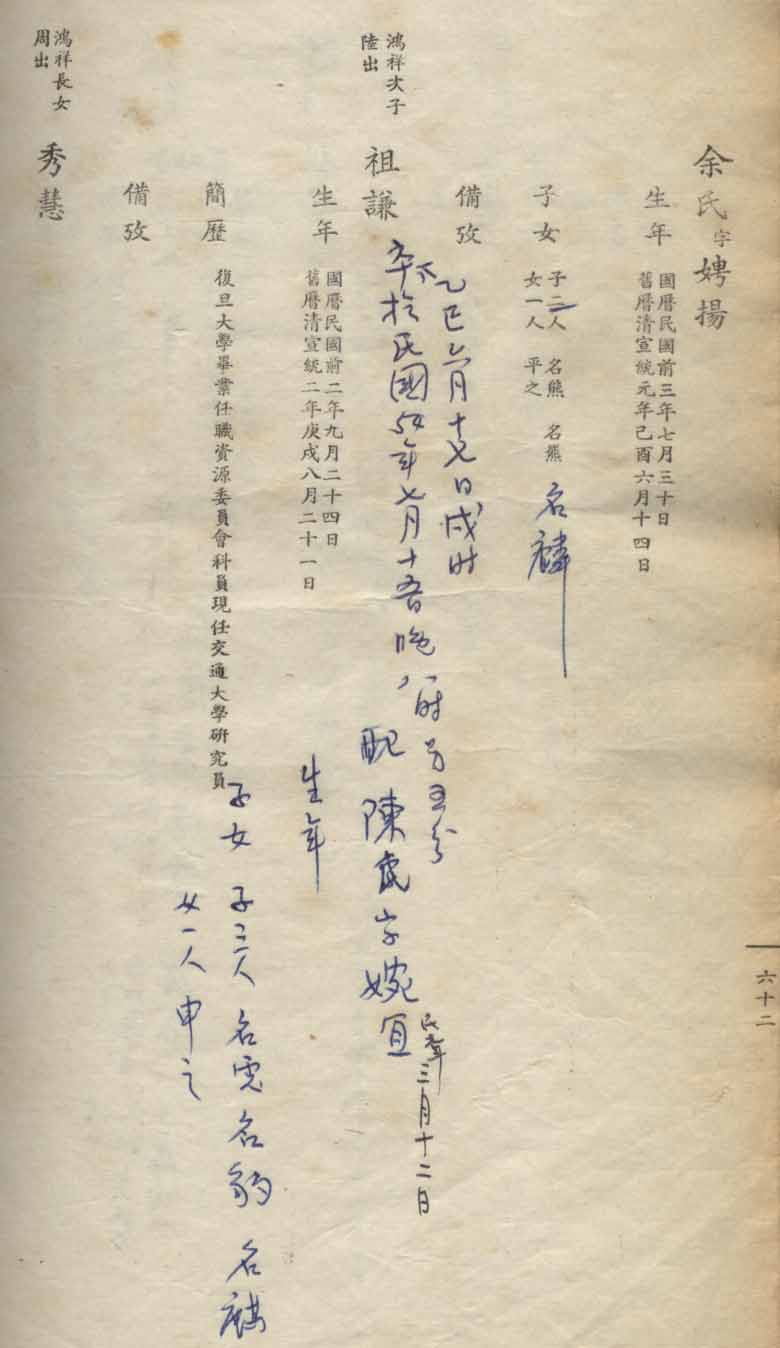 余氏字娉揚
生年
國曆民國前三年七月三十日
舊曆清宣統元年己酉六月十四日
子女
子二人 名熊 名羆 名麟
女一人 平之
備攷
乙巳六月十七日戌时
鴻祥次子
陸出
祖謙
卒於民國54年七月十五日晚八时
配陳氏字婉宜
三月十二日
生年
國曆民國前二年九月二十四日
舊曆清宣統二年庚戌八月二十一日
生年
簡歷
復旦大學畢業任職資源委員會科員現任交通大學研究員
子女 子三人 名虎 名豹 名麒
女一人 申之
備攷
鴻祥長女
周出
秀慧
六十二